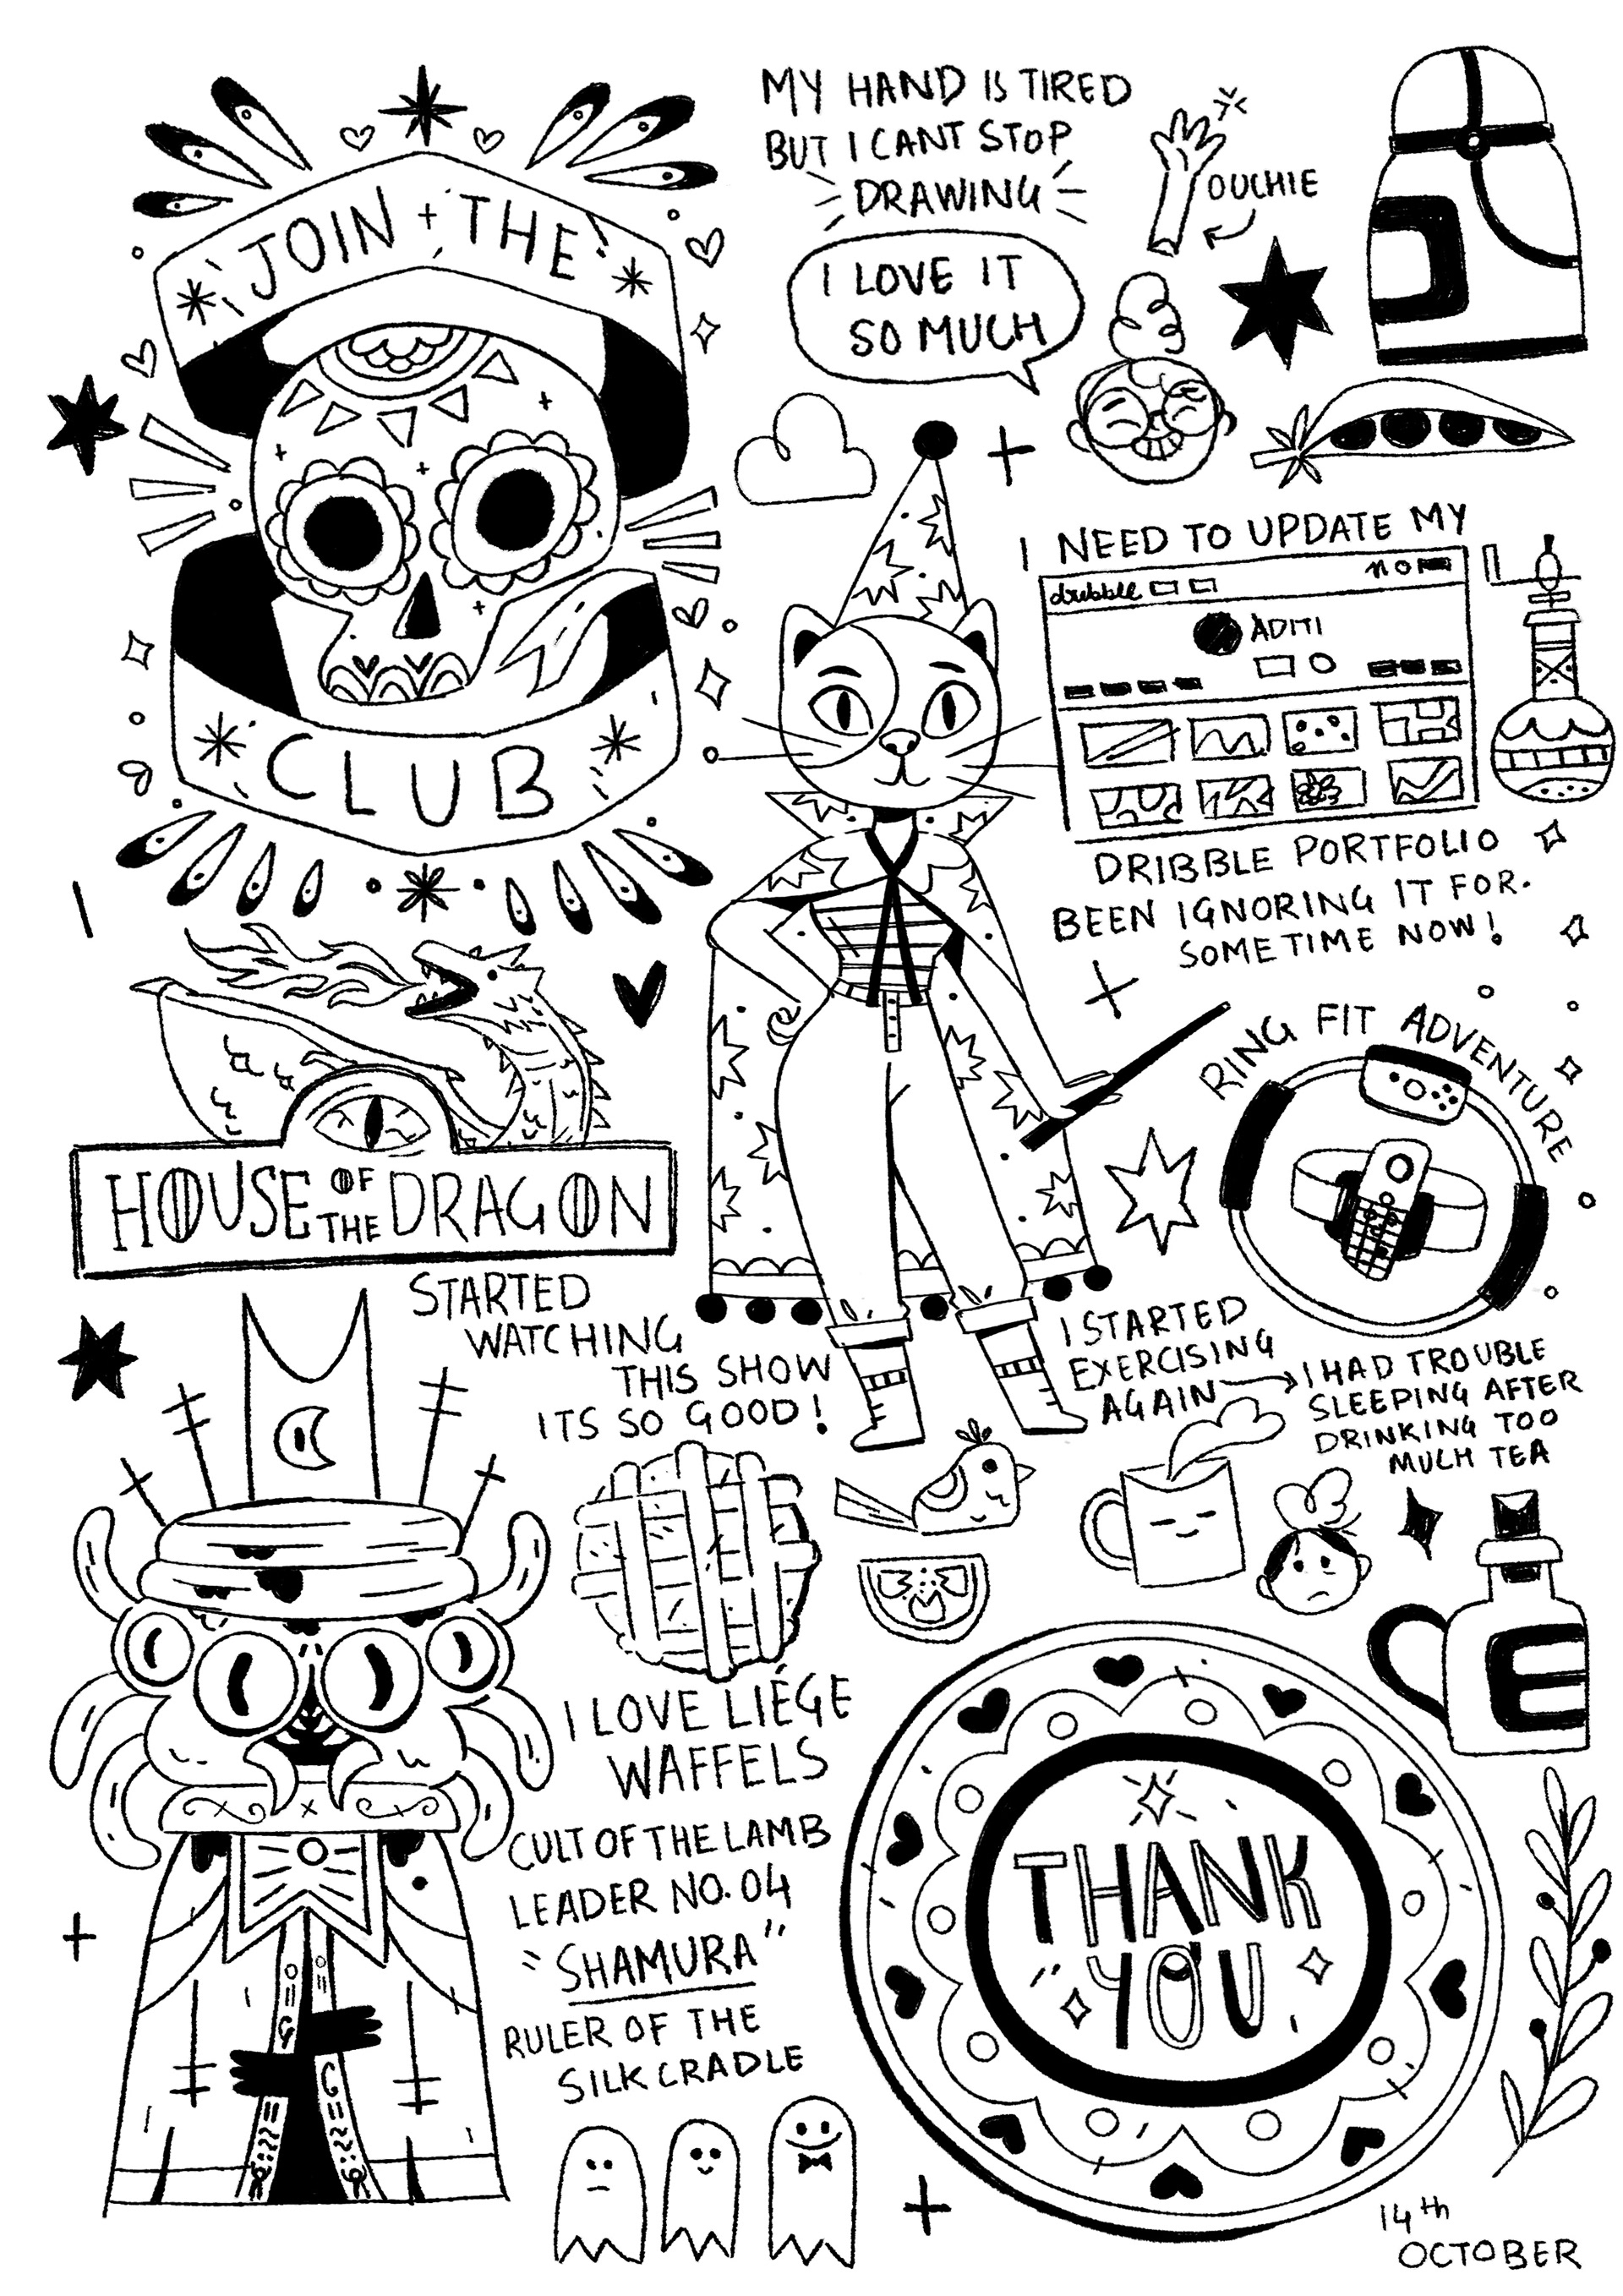 JOIN + THE
CLUB
MY HAND IS TIRED
BUT I CANT STOP
DRAWING
OUCHIE
I LOVE IT
SO MUCH
I NEED TO UPDATE MY
dribbble
ADITI
DRIBBLE PORTFOLIO
BEEN IGNORING IT FOR.
SOMETIME NOW!
HOUSE OF THE DRAGON
STARTED
WATCHING
THIS SHOW
ITS SO GOOD!
RING FIT ADVENTURE
I STARTED
EXERCISING
AGAIN
I HAD TROUBLE
SLEEPING AFTER
DRINKING TOO
MUCH TEA
I LOVE LIÉGE
WAFFELS
CULT OF THE LAMB
LEADER NO. 04
"SHAMURA"
RULER OF THE
SILK CRADLE
THANK
YOU
14th
OCTOBER